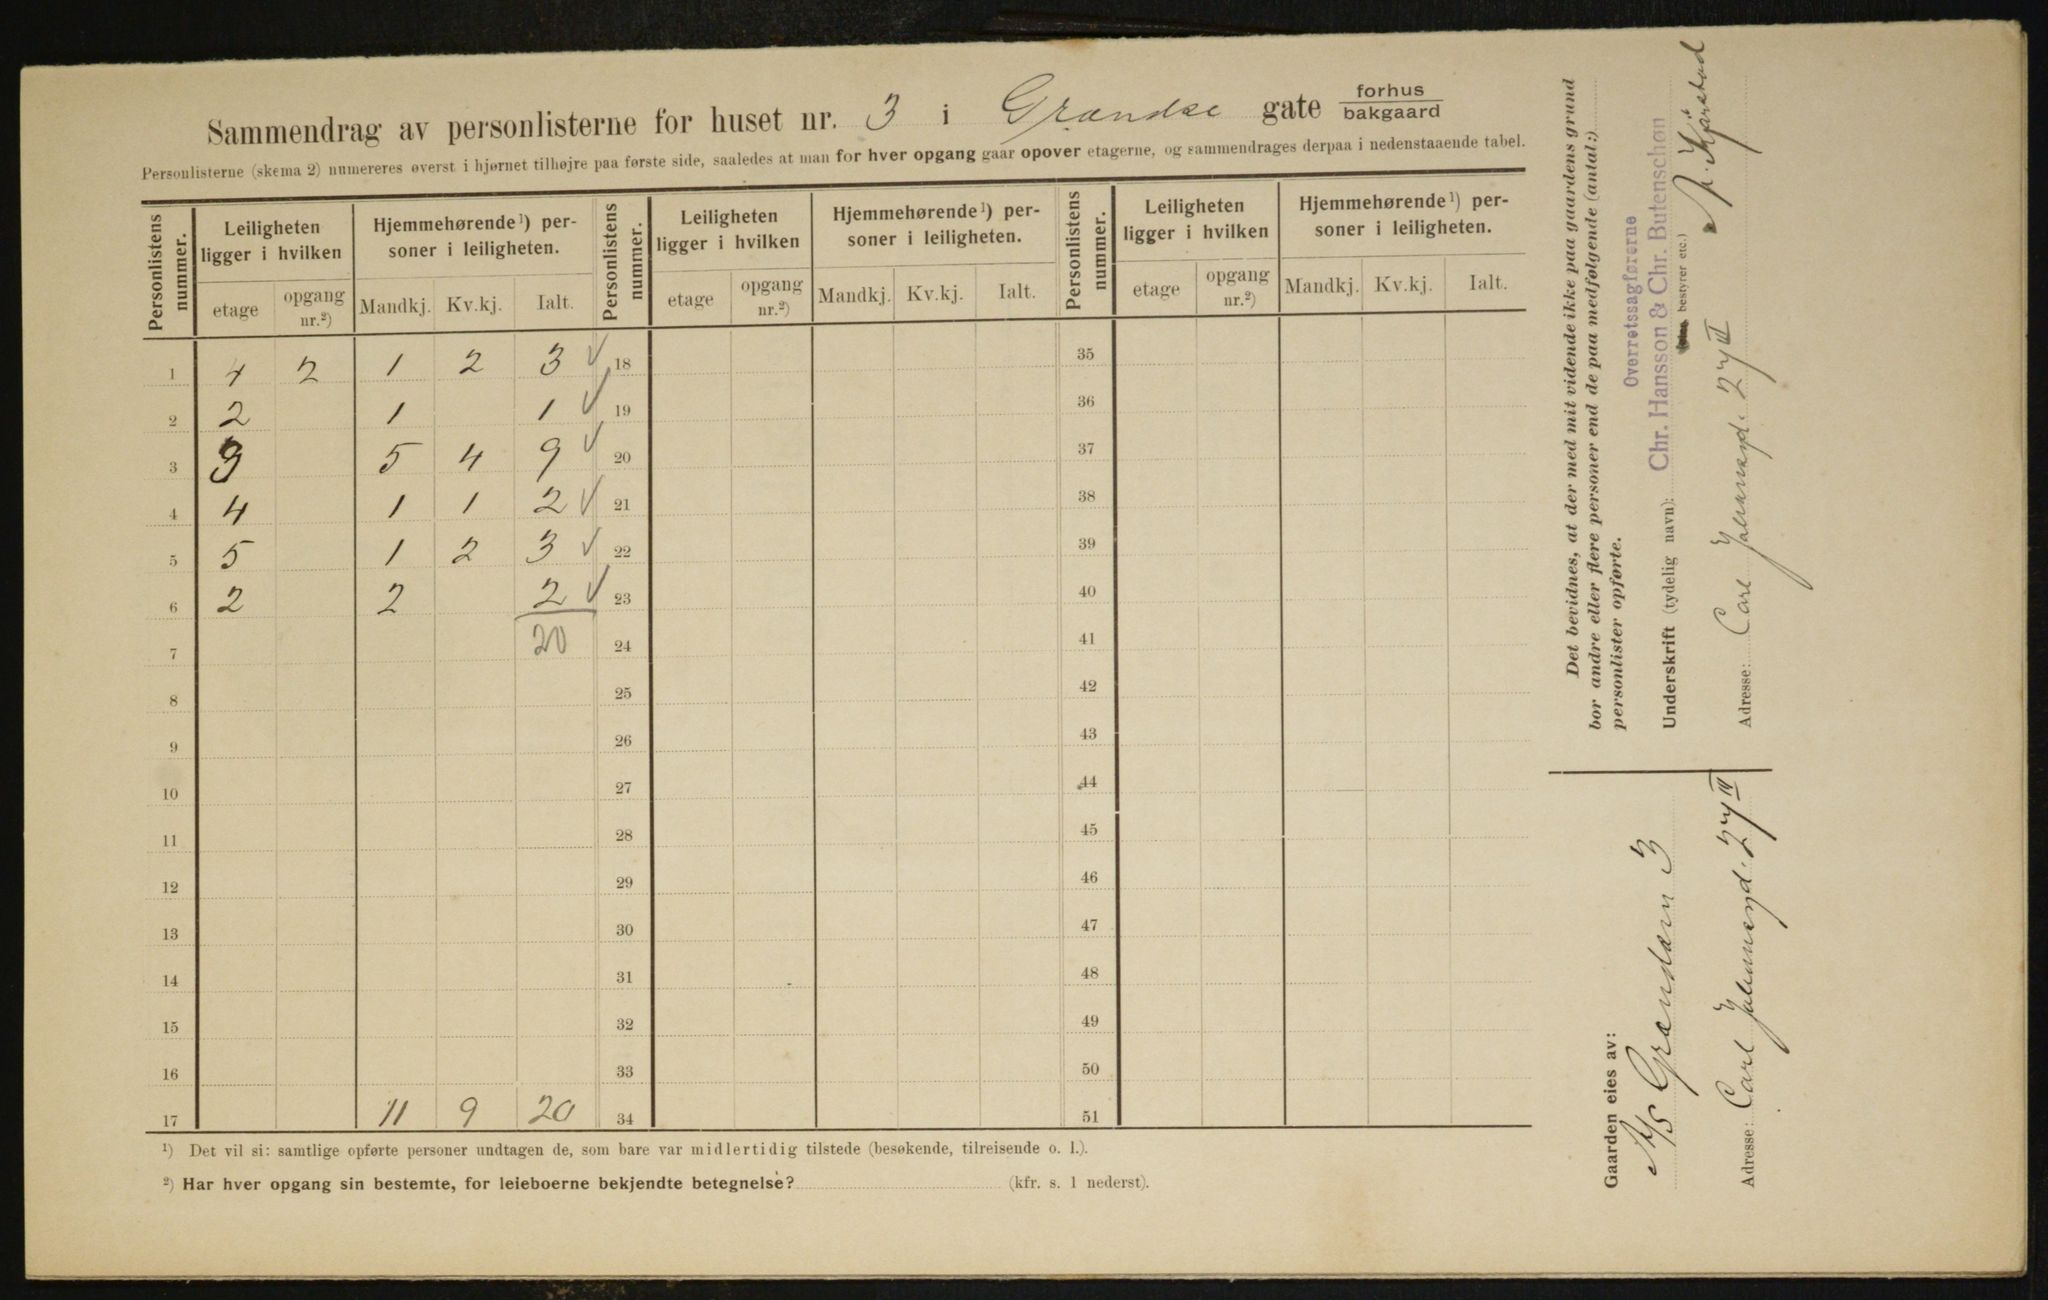 Sammendrag av personlisterne for huset nr. 3 i Grændse gate forhus
bakgaard
Personlisterne (skema 2) numereres øverst i hjørnet tilhøjre paa første side, saaledes at man for hver opgang gaar opover etagerne, og sammendrages derpaa i nedenstaaende tabel.
Personlistens nummer. Leiligheten ligger i hvilken Hjemmehørende ¹) personer i leiligheten. Personlistens nummer. Leiligheten ligger i hvilken Hjemmehørende ¹) personer i leiligheten. Personlistens nummer. Leiligheten ligger i hvilken Hjemmehørende ¹) personer i leiligheten.
etage opgang nr.²) Mandkj. Kv.kj. Ialt. etage opgang nr.²) Mandkj. Kv.kj. Ialt. etage opgang nr.²) Mandkj. Kv.kj. Ialt.
1 4 2 1 2 3 ✓ 18 35
2 2 1 1 ✓ 19 36
3 3 5 4 9 ✓ 20 37
4 4 1 1 2 ✓ 21 38
5 5 1 2 3 ✓ 22 39
6 2 2 2 ✓ 23 40
7 20 24 41
8 25 42
9 26 43
10 27 44
11 28 45
12 29 46
13 30 47
14 31 48
15 32 49
16 33 50
17 11 9 20 34 51
¹) Det vil si: samtlige opførte personer undtagen de, som bare var midlertidig tilstede (besøkende, tilreisende o. l.).
²) Har hver opgang sin bestemte, for leieboerne bekjendte betegnelse? (kfr. s. 1 nederst).
Det bevidnes, at der med mit vidende ikke paa gaardens grund
bor andre eller flere personer end de paa medfølgende (antal:)
personlister opførte.
Overretssagførerne
Underskrift (tydelig navn): Chr. Hansson & Chr. Butenschøn
bestyrer etc.)
Adresse: Carl Johansgd. 27 III
Gaarden eies av:
A/S Grændsen 3
Adresse: Carl Johansgd. 27 IV